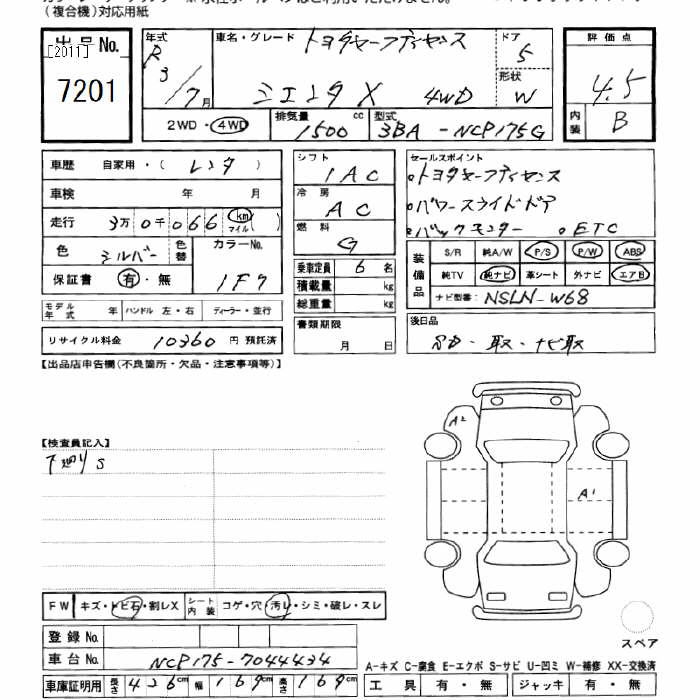 (複合機)対応用紙
出品No.
[2011]
7201
年式
R3/7月
車名・グレード
トヨタセーフティセンス
シエンタ X 4WD
ドア
5
形状
W
評価点
4.5
内装
B
2WD・4WD
排気量
1500 cc
型式
3BA-NCP175G
車歴 自家用・(レンタ)
車検 年 月
走行 3万0千066 km マイル ( )
色 シルバー 色替
カラーNo.
1F7
保証書 有・無
モデル年式 年 ハンドル 左・右 ディーラー・並行
リサイクル料金 10360 円 預託済
シフト
IAC
冷房
AC
燃料
G
乗車定員 6 名
積載量 kg
総重量 kg
書類期限
月 日
セールスポイント
トヨタセーフティセンス
パワースライドドア
バックモニター ETC
装備品
S/R 純A/W P/S P/W ABS
純TV 純ナビ 革シート 外ナビ エアB
ナビ型番: NSLN-W68
後日品
・取・ナビ取
【出品店申告欄(不良箇所・欠品・注意事項等)】
【検査員記入】
下廻りS
A2
A1
FW キズ・トビ石・割レX シート内装 コゲ・穴・汚レ・シミ・破レ・スレ
登録No.
車台No. NCP175-7044434
車庫証明用 長さ 426cm 幅 169cm 高さ 169cm
スペア
A-キズ C-腐食 E-エクボ S-サビ U-凹ミ W-補修 XX-交換済
工具 有・無 ジャッキ 有・無